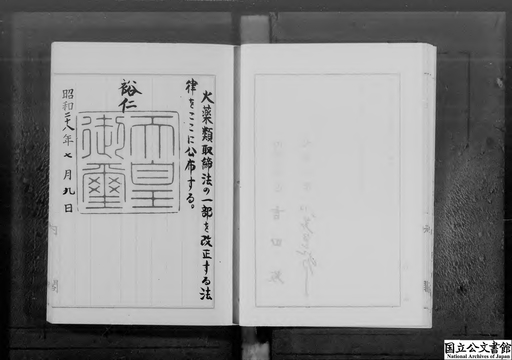 火薬類取締法の一部を改正する法
律をここに公布する。
裕仁
天皇
御璽
昭和二十八年七月九日
国立公文書館
National Archives of Japan